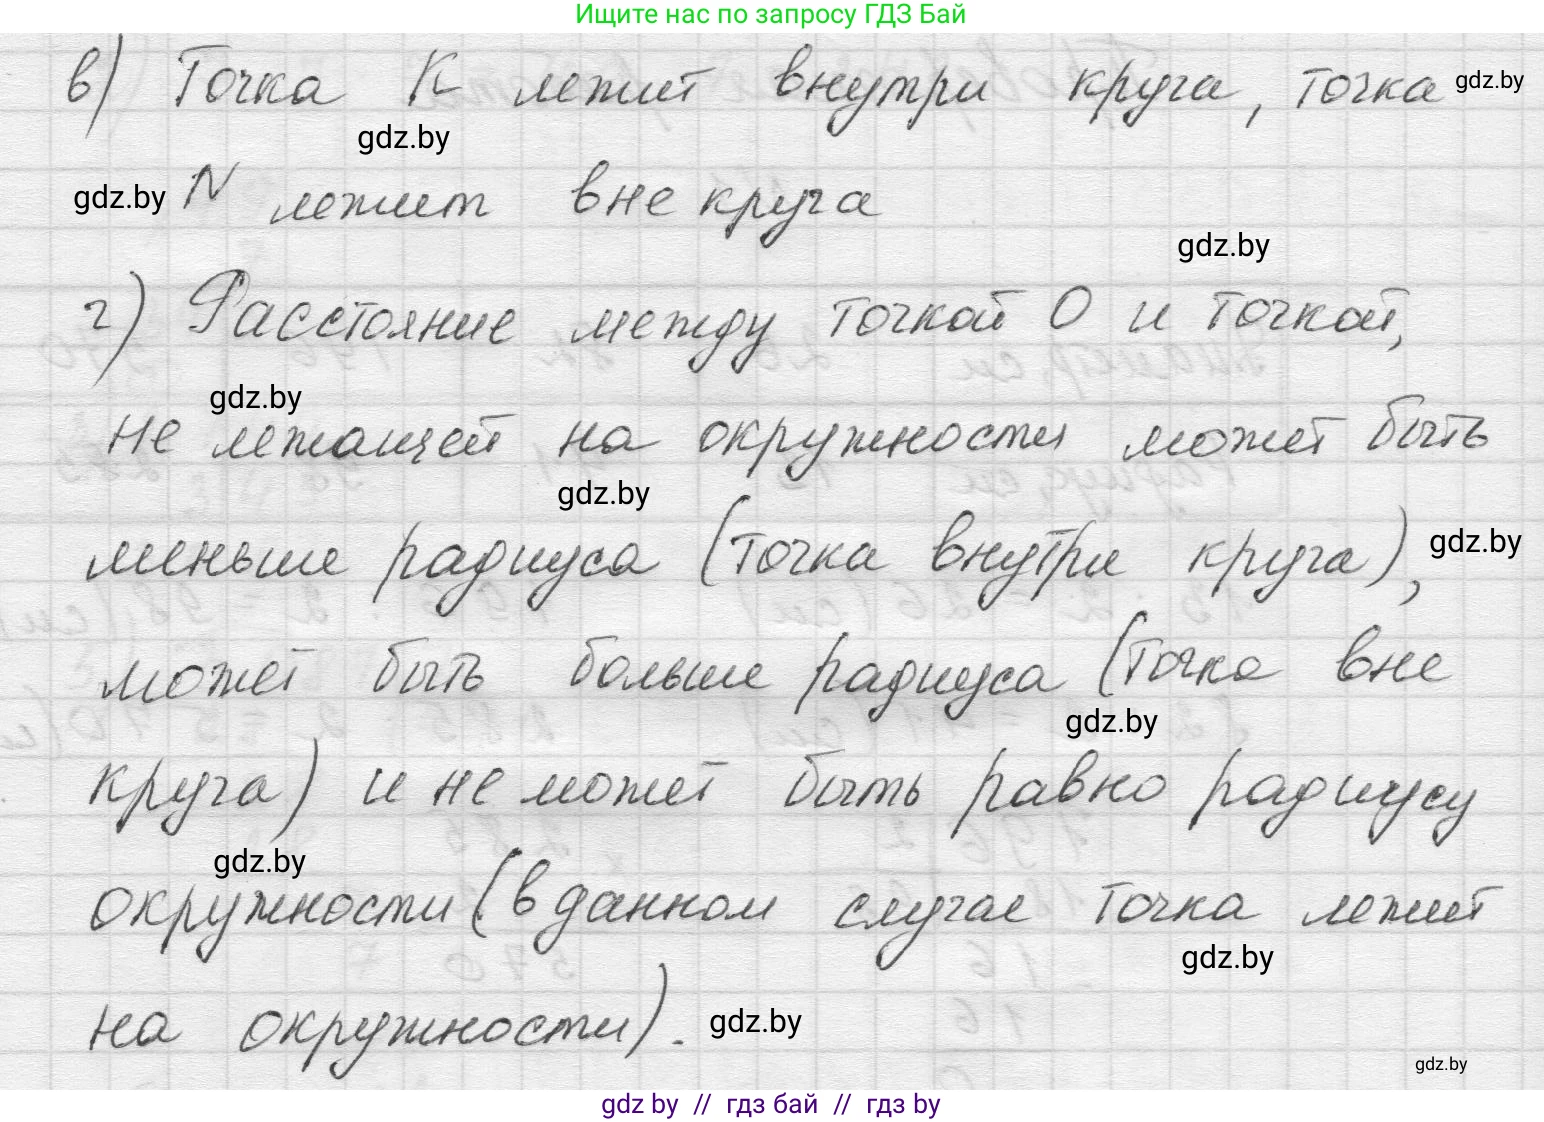 Ищите нас по запросу ГДЗ Бай
в) Точка К лежит внутри круга, точка gdz.by
gdz.by
gdz.by N лежит вне круга
gdz.by
г) Расстояние между точкой О и точкой,
gdz.by
не лежащей на окружности может быть
gdz.by
меньше радиуса (точка внутри круга), gdz.by
может быть больше радиуса (точка вне
gdz.by
круга) и не может быть равно радиусу
gdz.by
окружности (в данном случае точка лежит
gdz.by
на окружности). gdz.by
gdz.by
gdz by // гдз бай // гдз by